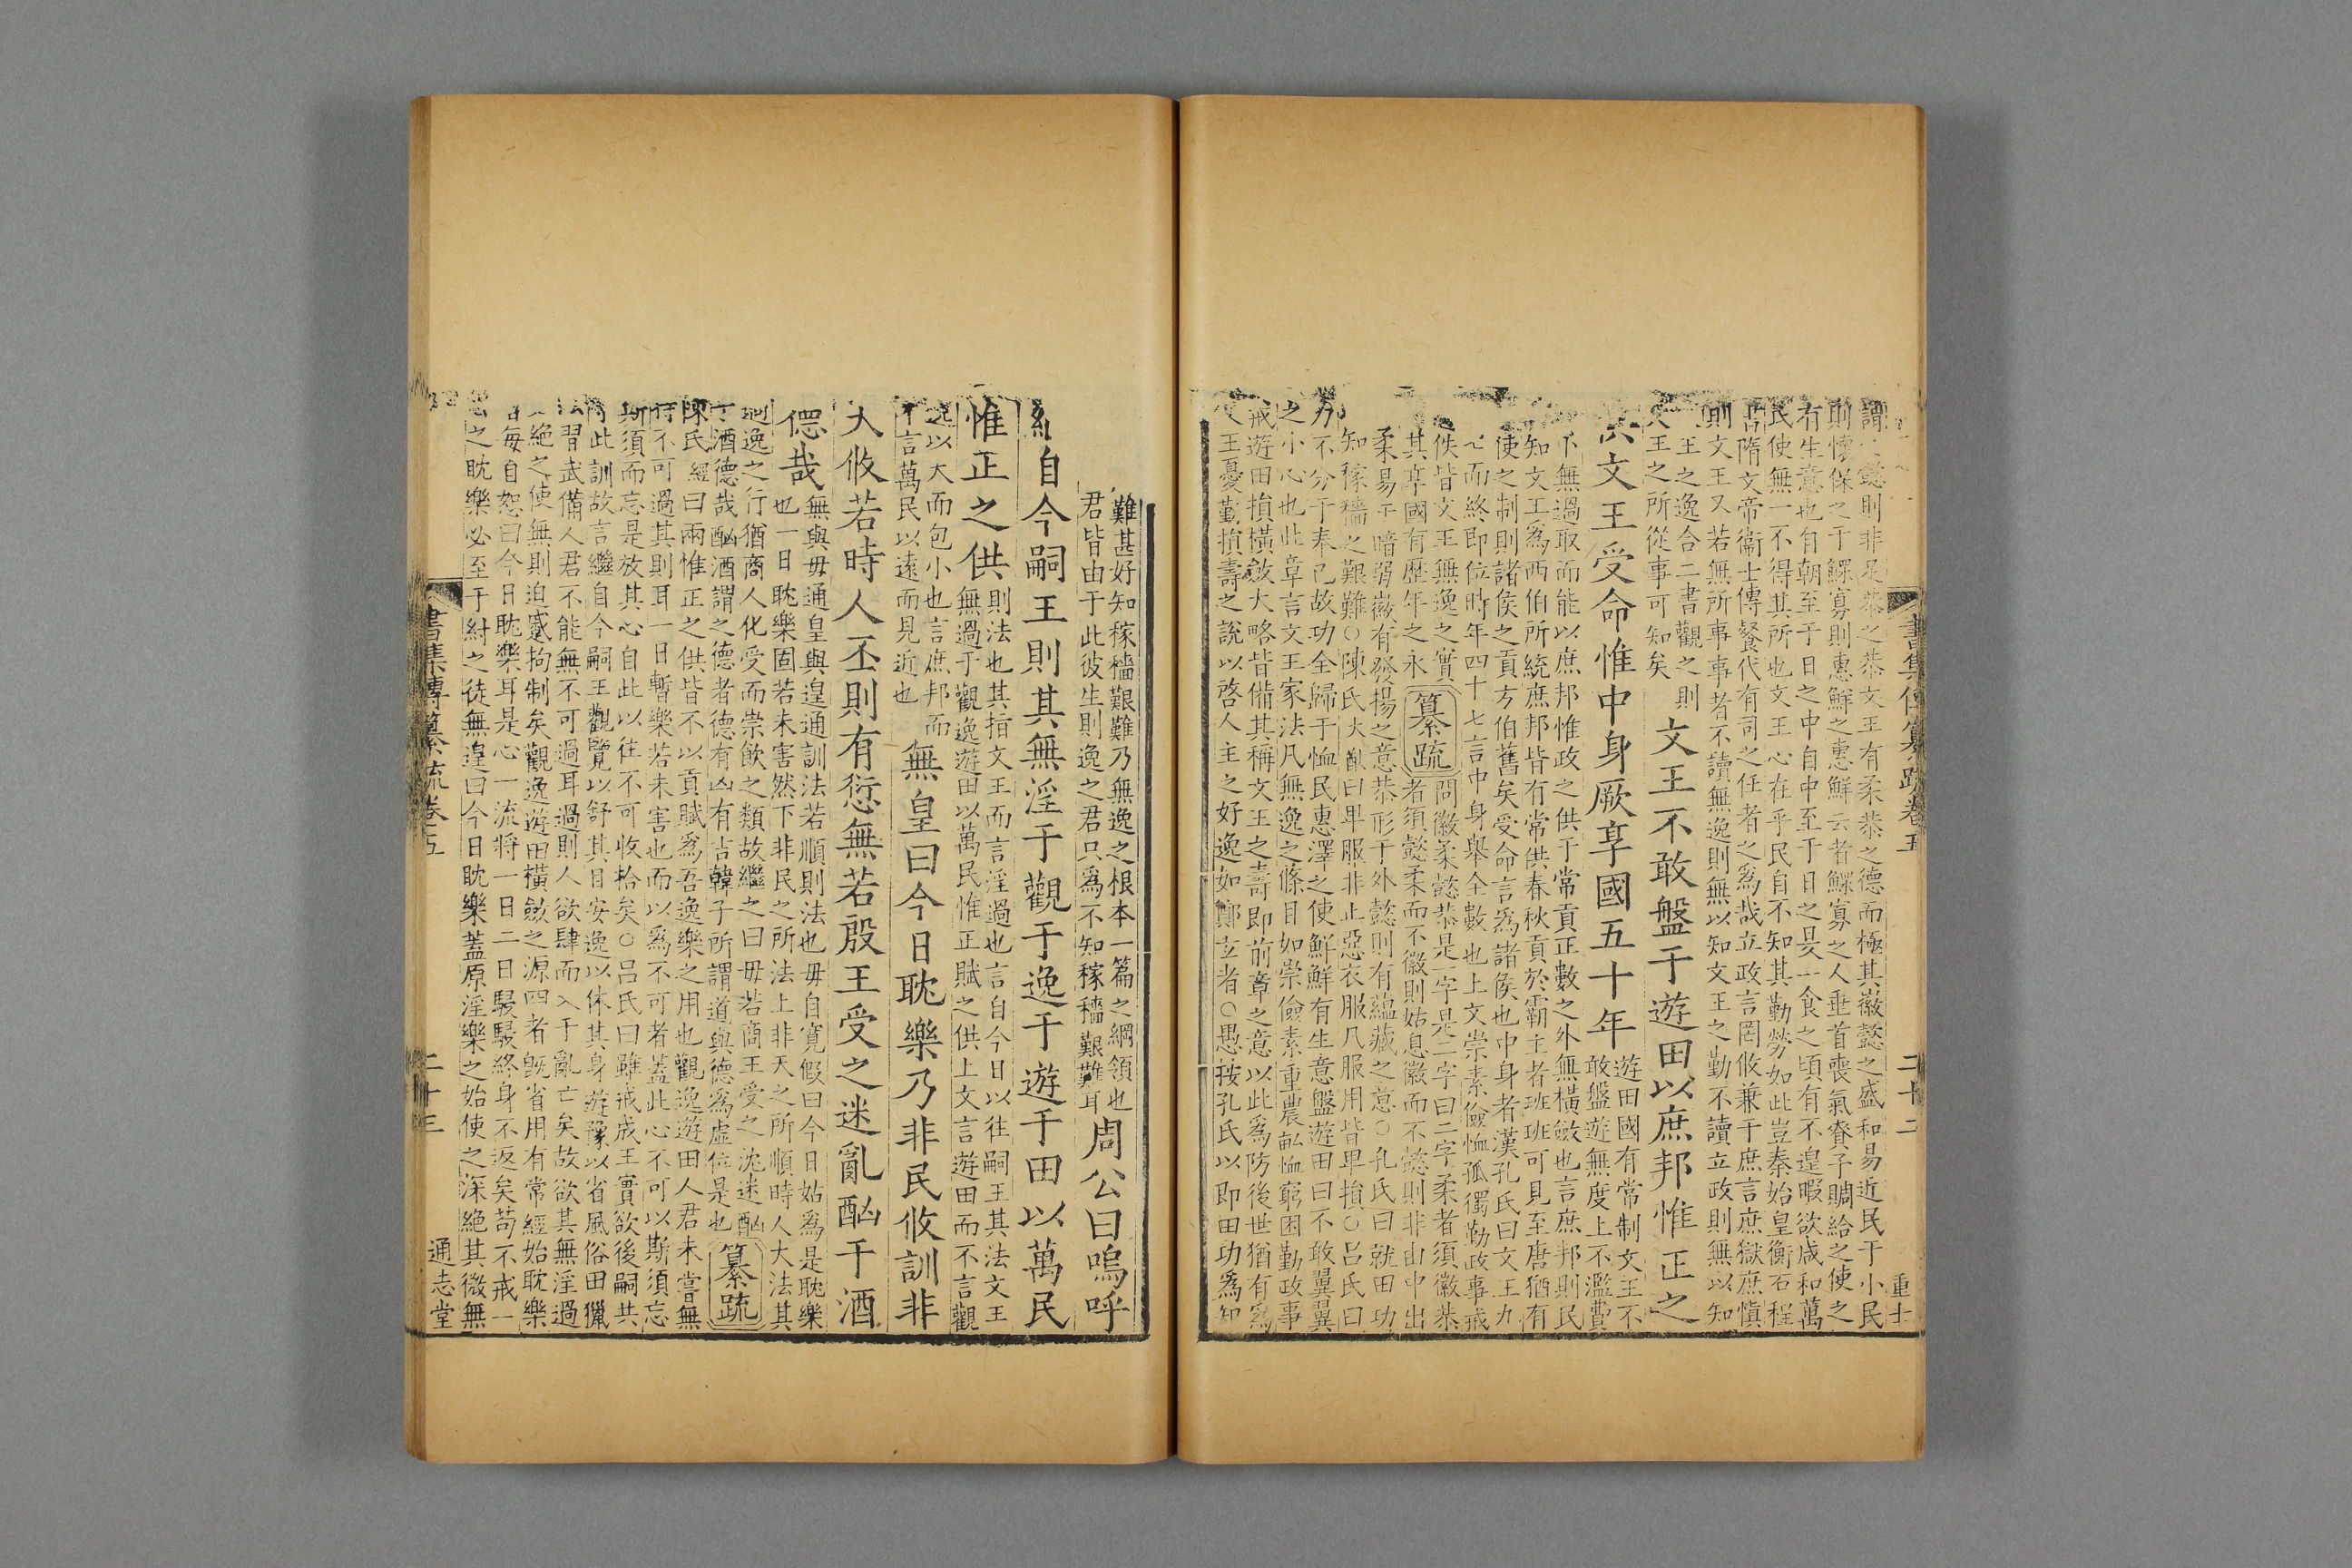 謂之懿則非足恭之恭文王有柔恭之德而極其徽懿之盛和易近民于小民
則懷保之于鰥寡則惠鮮之惠鮮云者鰥寡之人垂首喪氣賚予賙給之使之
有生意也自朝至于日之中自中至于日之昃一食之頃有不遑暇欲咸和萬
民使無一不得其所也文王心在乎民自不知其勤勞如此豈秦始皇衡石程
書隋文帝衞士傳餐代有司之任者之爲哉立政言罔攸兼于庶言庶獄庶慎
則文王又若無所事事者不讀無逸則無以知文王之勤不讀立政則無以知
文王之逸合二書觀之則
文王之所從事可知矣
文王不敢盤于遊田以庶邦惟正之
供文王受命惟中身厥享國五十年
遊田國有常制文王不
敢盤遊無度上不濫費
下無過取而能以庶邦惟政之供于常貢正數之外無橫斂也言庶邦則民
可知文王爲西伯所統庶邦皆有常供春秋貢於霸主者班班可見至唐猶有
送使之制則諸侯之貢方伯舊矣受命言爲諸侯也中身者漢孔氏曰文王九
十七而終即位時年四十七言中身舉全數也上文崇素儉恤孤獨勤政事戒
遊佚皆文王無逸之實
其享國有歷年之永
纂疏
問徽柔懿恭是一字是二字曰二字柔者須徽恭
者須懿柔而不徽則姑息徽而不懿則非由中出
柔易于暗弱徽有發揚之意恭形于外懿則有蘊藏之意○孔氏曰就田功
知稼穡之艱難○陳氏大猷曰卑服非止惡衣服凡服用皆卑損○呂氏曰
力不分于奉己故功全歸于恤民惠澤之使鮮鮮有生意盤遊田曰不敢翼翼
之小心也此章言文王家法凡無逸之條目如崇儉素重農畝恤窮困勤政事
戒遊田損橫斂大略皆備其稱文王之壽即前章之意以此爲防後世猶有爲
文王憂勤損壽之說以啓人主之好逸如鄭玄者○愚按孔氏以即田功爲知
書集傳纂疏卷五
二十二
重士
難甚好知稼穡艱難乃無逸之根本一篇之綱領也
君皆由于此彼生則逸之君只爲不知稼穡艱難耳
周公曰嗚呼
繼自今嗣王則其無淫于觀于逸于遊于田以萬民
惟正之供
則法也其指文王而言淫過也言自今日以往嗣王其法文王
無過于觀逸遊田以萬民惟正賦之供上文言遊田而不言觀
逸以大而包小也言庶邦而
不言萬民以遠而見近也
無皇曰今日耽樂乃非民攸訓非
天攸若時人丕則有愆無若殷王受之迷亂酗于酒
德哉
無與毋通皇與遑通訓法若順則法也毋自寬假曰今日姑爲是耽樂
也一日耽樂固若未害然下非民之所法上非天之所順時人大法其
過逸之行猶商人化受而崇飲之類故繼之曰毋若商王受之沈迷酗
于酒德哉酗酒謂之德者德有凶有吉韓子所謂道與德爲虛位是也
纂疏
陳氏經曰兩惟正之供皆不以貢賦爲吾逸樂之用也觀逸遊田人君未嘗無
特不可過其則耳一日暫樂若未害也而以爲不可者蓋此心不可以斯須忘
斯須而忘是放其心自此以往不可收拾矣○呂氏曰雖戒成王實欲後嗣共
守此訓故言繼自今嗣王觀覽以舒其目安逸以休其身遊豫以省風俗田獵
以習武備人君不能無不可過耳過則人欲肆而入于亂亡矣故欲其無淫過
欲絕之使無則迫蹙拘制矣觀逸遊田橫斂之源四者旣省用有常經始耽樂
者每自恕曰今日耽樂耳是心一流將一日二日駸駸終身不返矣苟不戒一
日之耽樂必至于紂之徒無遑曰今日耽樂蓋原淫樂之始使之深絕其微無
書集傳纂疏卷五
二十三
通志堂